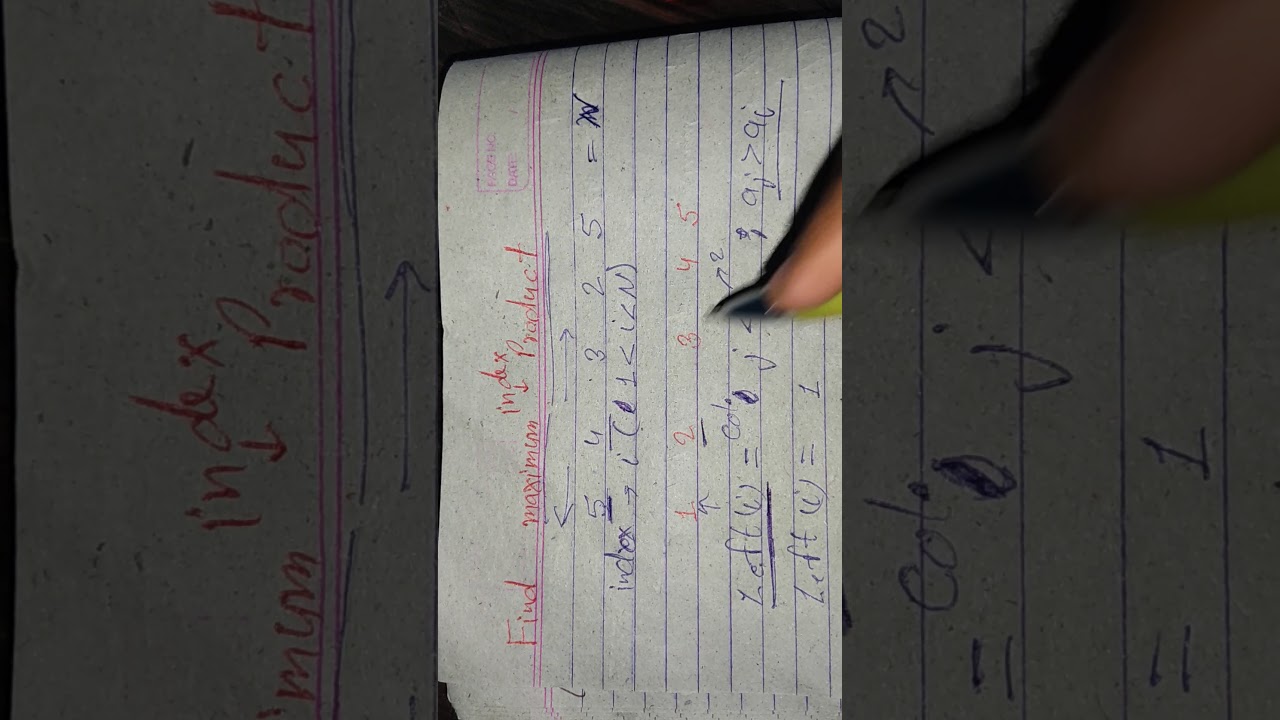 PAGE NO.
DATE
Find maximum index Product
5 4 3 2 5 = N
index → i ( 1 < i < N)
1 2 3 4 5
Left (i) = j < ; aj > ai
Left (i) = 1